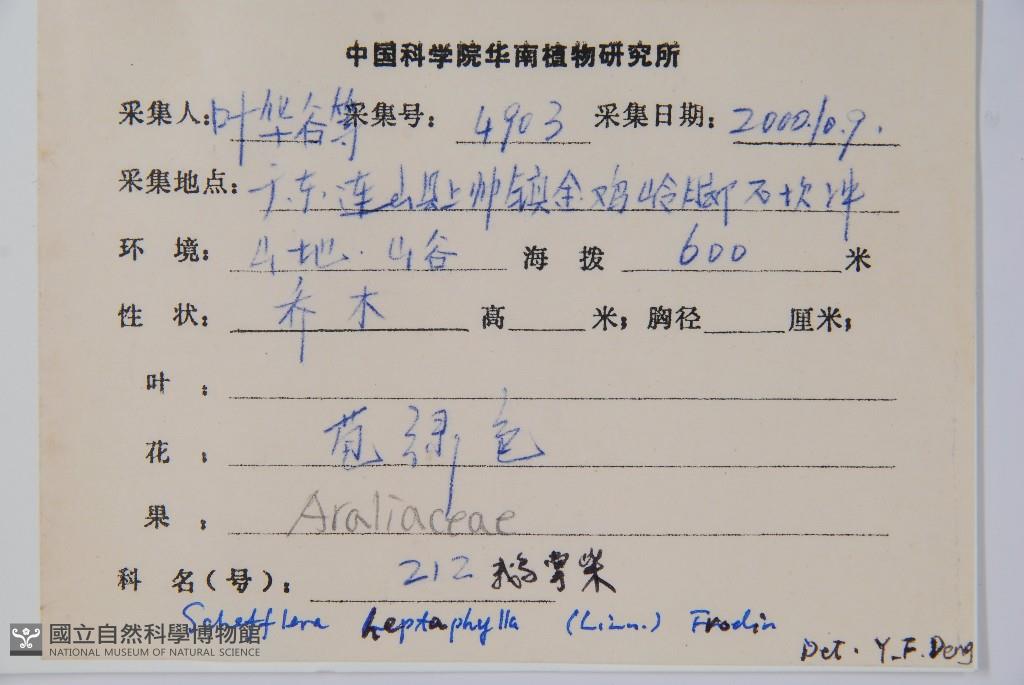 中国科学院华南植物研究所
采集人: 叶华谷等 采集号: 4903 采集日期: 2000.10.9.
采集地点: 广东连山县上帅镇金鸡岭脚石坎冲
环 境: 山地·山谷 海 拨 600 米
性 状: 乔木 高 米; 胸径 厘米;
叶 :
花 : 苞绿色
果 : Araliaceae
科 名(号): 212 鹅掌柴
Schefflera heptaphylla (Linn.) Frodin
Det. Y.F. Deng
國立自然科學博物館
NATIONAL MUSEUM OF NATURAL SCIENCE